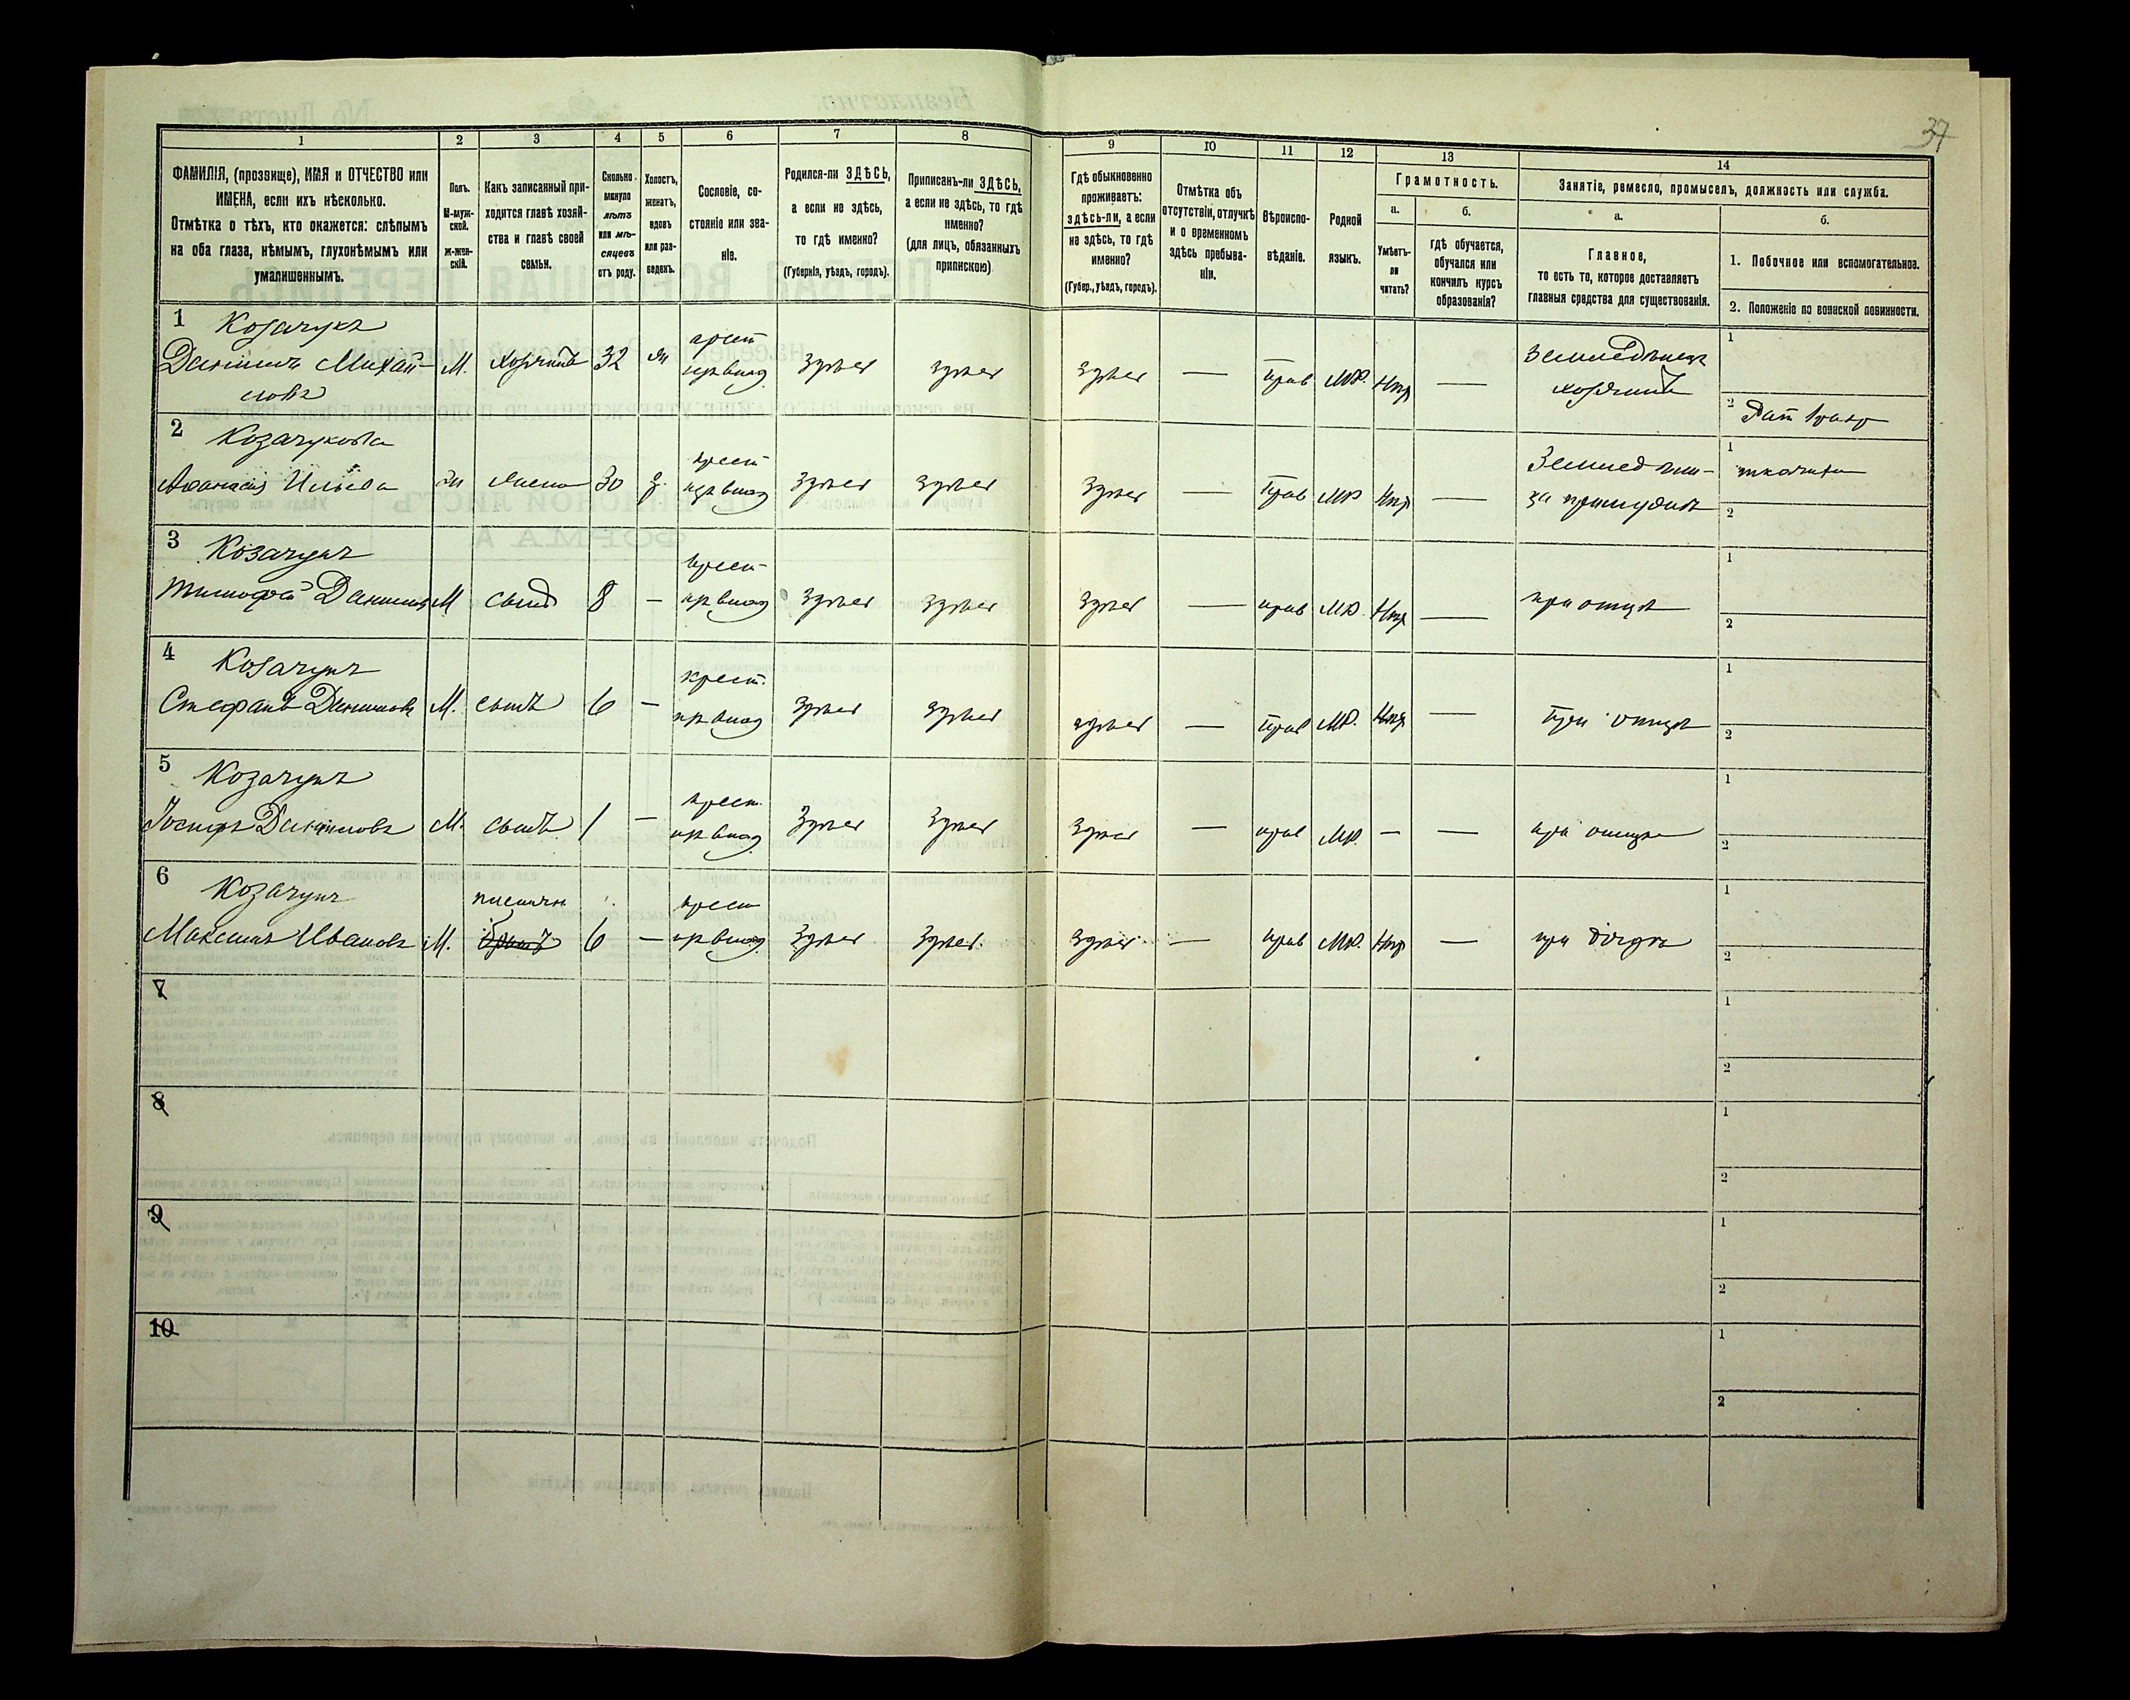 37
1 2 3 4 5 6 7 8 9 10 11 12 13 14
ФАМИЛІЯ, (прозвище), ИМЯ и ОТЧЕСТВО или
ИМЕНА, если ихъ нѣсколько.
Отмѣтка о тѣхъ, кто окажется: слѣпымъ
на оба глаза, нѣмымъ, глухонѣмымъ или
умалишеннымъ.
Полъ.
М-муж-
ской.
ж-жен-
скій.
Какъ записанный при-
ходится главѣ хозяй-
ства и главѣ своей
семьи.
Сколько
минуло
лѣтъ
или мѣ-
сяцевъ
отъ роду.
Холостъ,
женатъ,
вдовъ
или раз-
веденъ.
Сословіе, со-
стояніе или зва-
ніе.
Родился-ли ЗДѢСЬ,
а если не здѣсь,
то гдѣ именно?
(Губернія, уѣздъ, городъ).
Приписанъ-ли ЗДѢСЬ,
а если не здѣсь, то гдѣ
именно?
(для лицъ, обязанныхъ
припискою)
Гдѣ обыкновенно
проживаетъ:
здѣсь-ли, а если
не здѣсь, то гдѣ
именно?
(Губер., уѣздъ, городъ).
Отмѣтка объ
отсутствіи, отлучкѣ
и о временномъ
здѣсь пребыва-
ніи.
Вѣроиспо-
вѣданіе.
Родной
языкъ.
Грамотность.
а.
Умѣетъ-
ли
читать?
б.
гдѣ обучается,
обучался или
кончилъ курсъ
образованія?
Занятіе, ремесло, промыселъ, должность или служба.
а.
Главное,
то есть то, которое доставляетъ
главныя средства для существованія.
б.
1. Побочное или вспомогательное.
2. Положеніе по воинской повинности.
1 Козачукъ
Даниилъ Михай-
ловъ
М. хозяинъ 32 крест
здѣсь здѣсь здѣсь — прав МР. —
Земледѣлецъ
хозяинъ
1
2
2 Козачукова
Ильева
жена 30 крест
здѣсь здѣсь здѣсь — прав МР —
1
2
3 Козачукъ
Тимофей Данилов
М сынъ 8 — крест
здѣсь здѣсь здѣсь — прав МР. —
при отцѣ
1
2
4 Козачукъ
Стефанъ Даниловъ
М. сынъ 6 — крест.
здѣсь здѣсь здѣсь — прав МР. —
при отцѣ
1
2
5 Козачукъ
Іосифъ Даниловъ
М. сынъ 1 — крест.
здѣсь здѣсь здѣсь — прав МР. — —
при отцѣ
1
2
6 Козачукъ
Максимъ Ивановъ
М. 6 — крест
здѣсь здѣсь здѣсь — прав МР. —
при дядѣ
1
2
7
1
2
8
1
2
9
1
2
10
1
2